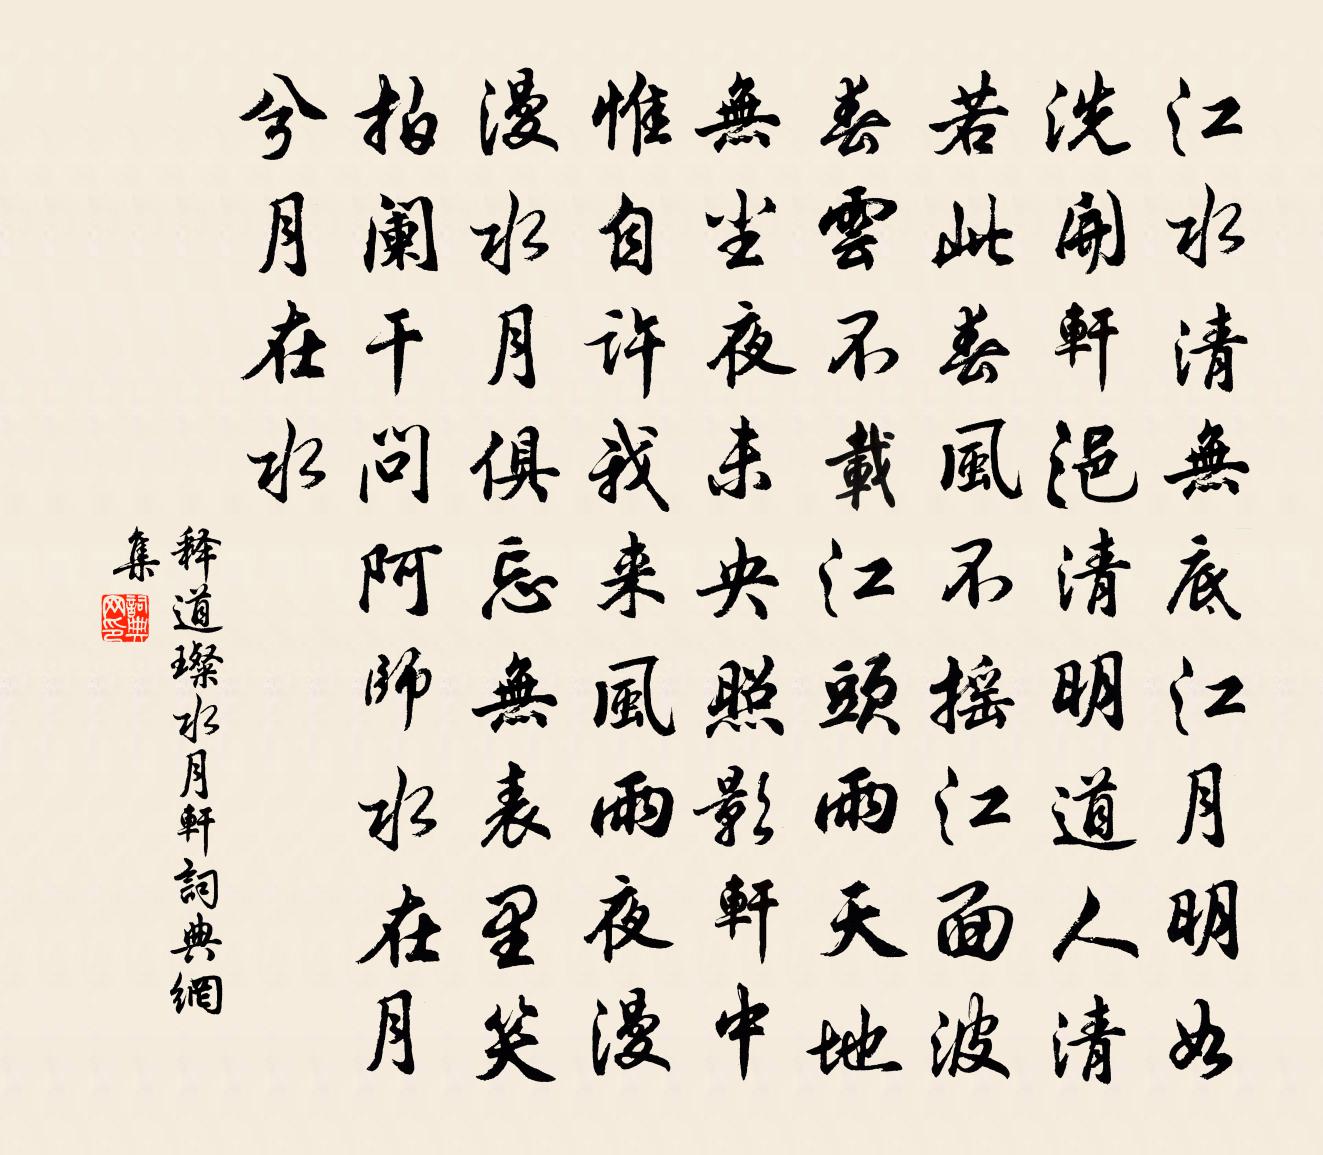 江水清無底江月明如
洗開軒浥清明道人清
若此春風不摇江面波
春雲不載江頭雨天地
無尘夜未央照影軒中
惟自許我来風雨夜漫
漫水月俱忘無表里笑
拍阑干問阿師水在月
兮月在水
释道璨水月軒詞典網
集
詞典
网印